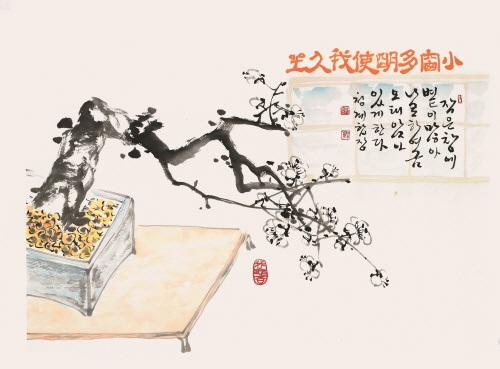 小窗多明使我久坐
작은 창에
볕이 많아
나로 하여금
오래 앉아
있게 한다
청계